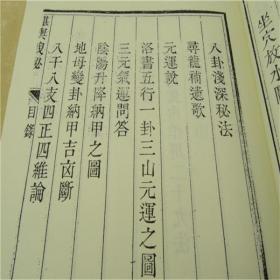 坐穴放水
八卦淺深秘法
尋龍補遺歌
元運說
洛書五行一卦三山元運之圖
三元氣運問答
陰陽升降納甲之圖
地母變卦納甲吉凶斷
八干八支四正四維論
目錄